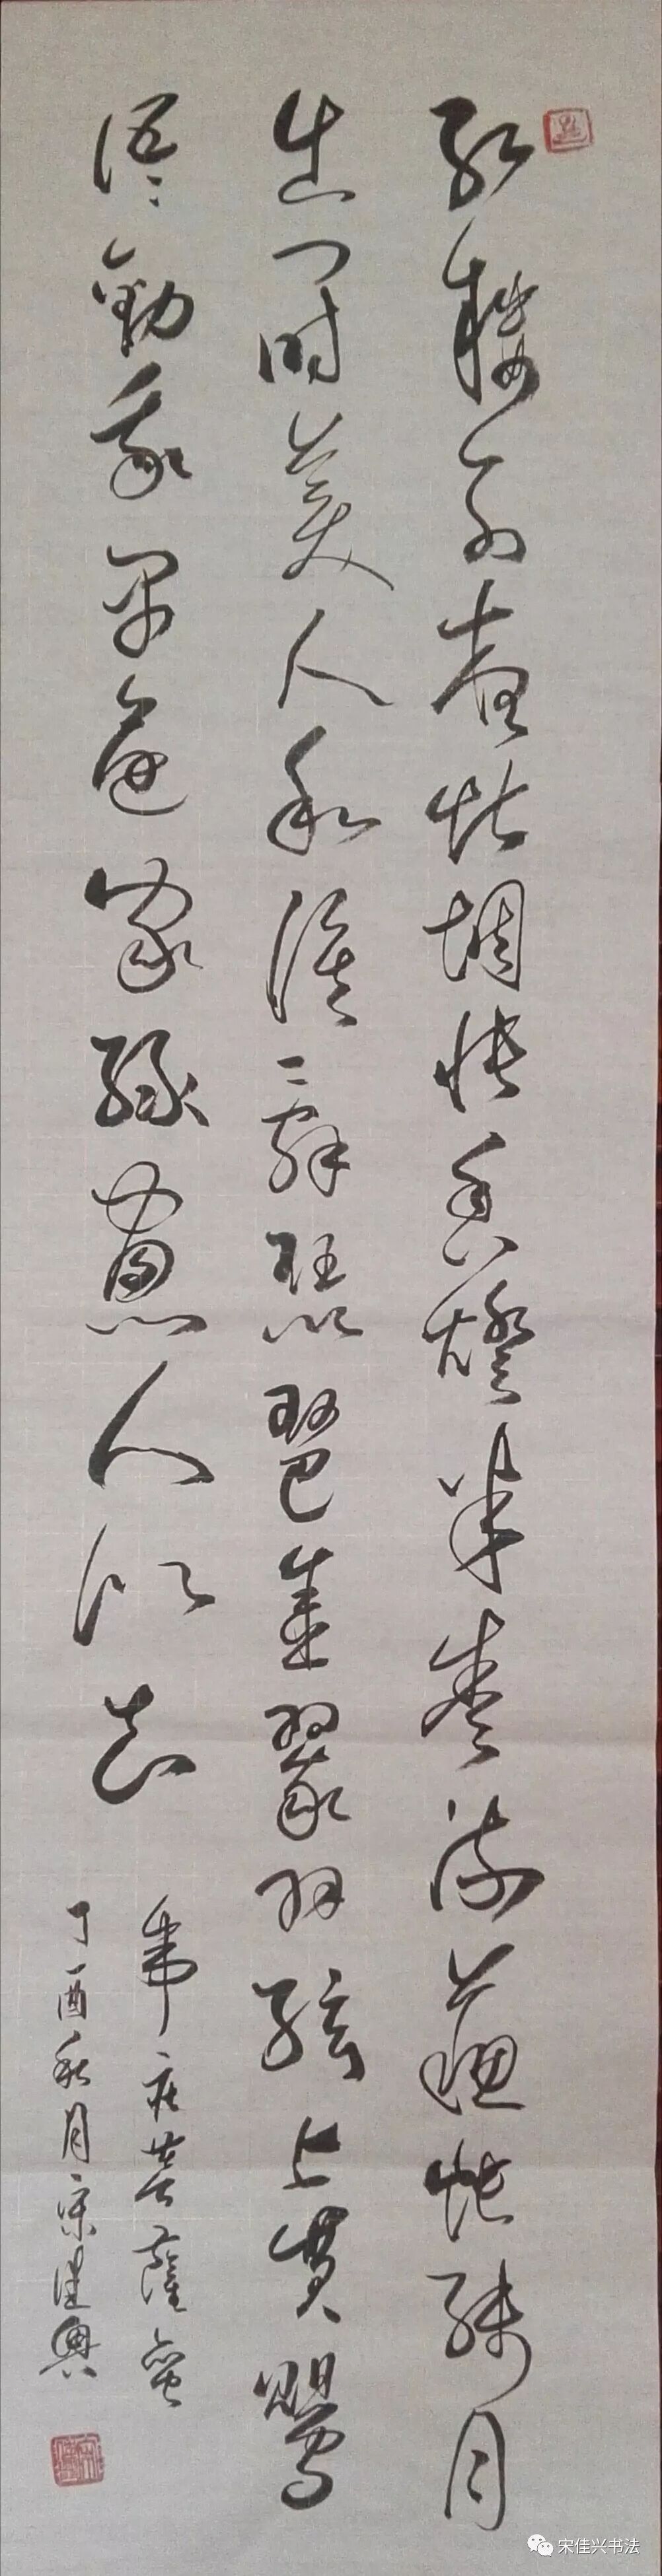 红楼别夜堪惆怅香燈半卷流蘇帐残月
出门时美人和泪辞琵琶金翠羽弦上黄鶯
语劝我早归家绿窗人似花
韦庄菩薩蛮
丁酉秋月宋佳興
宋佳兴书法